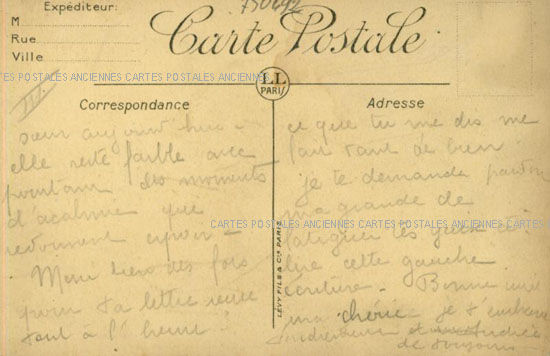 Expéditeur:
M
Rue
Ville
750642
Carte Postale
CARTES POSTALES ANCIENNES CARTES POSTALES ANCIENNES
LL
PARIS
III
Correspondance
sœur aujourd'hui -
elle reste faible avec
pourtant des moments
d'acalmie que
redonnent espoir -
Merci bien des fois
pour ta lettre reçue
tant à l'heure!
LÉVY FILS & Cie PARIS
Adresse
ce que tu me dis me
fait tant de bien!
je te demande pardon
ma grande de
CARTES POSTALES ANCIENNES CARTES POSTALES ANCIENNES
fatiguer tes yeux
lire cette gauche
écriture - Bonne nuit
ma chérie je t'embrasse
tendrement
de toujours